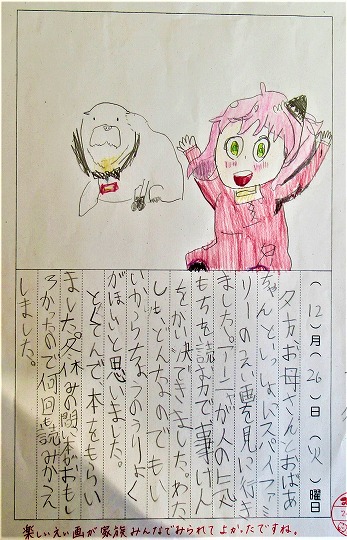 (12)月(26)日(火)曜日
夕方、お母さんとおばあ
ちゃんといっしょにスパイファミ
リーのえい画を見に行き
ました。アーニャが人の気
もちを読む力で事けん
をかい決できました。わた
しも、どんなのでもい
いからちょうのうりょく
がほしいと思いました。
とくてんで本をもらい
ました。冬休みの間本がおもし
ろかったので何回も読みかえ
しました。
楽しいえい画が家族みんなでみられてよかったですね。